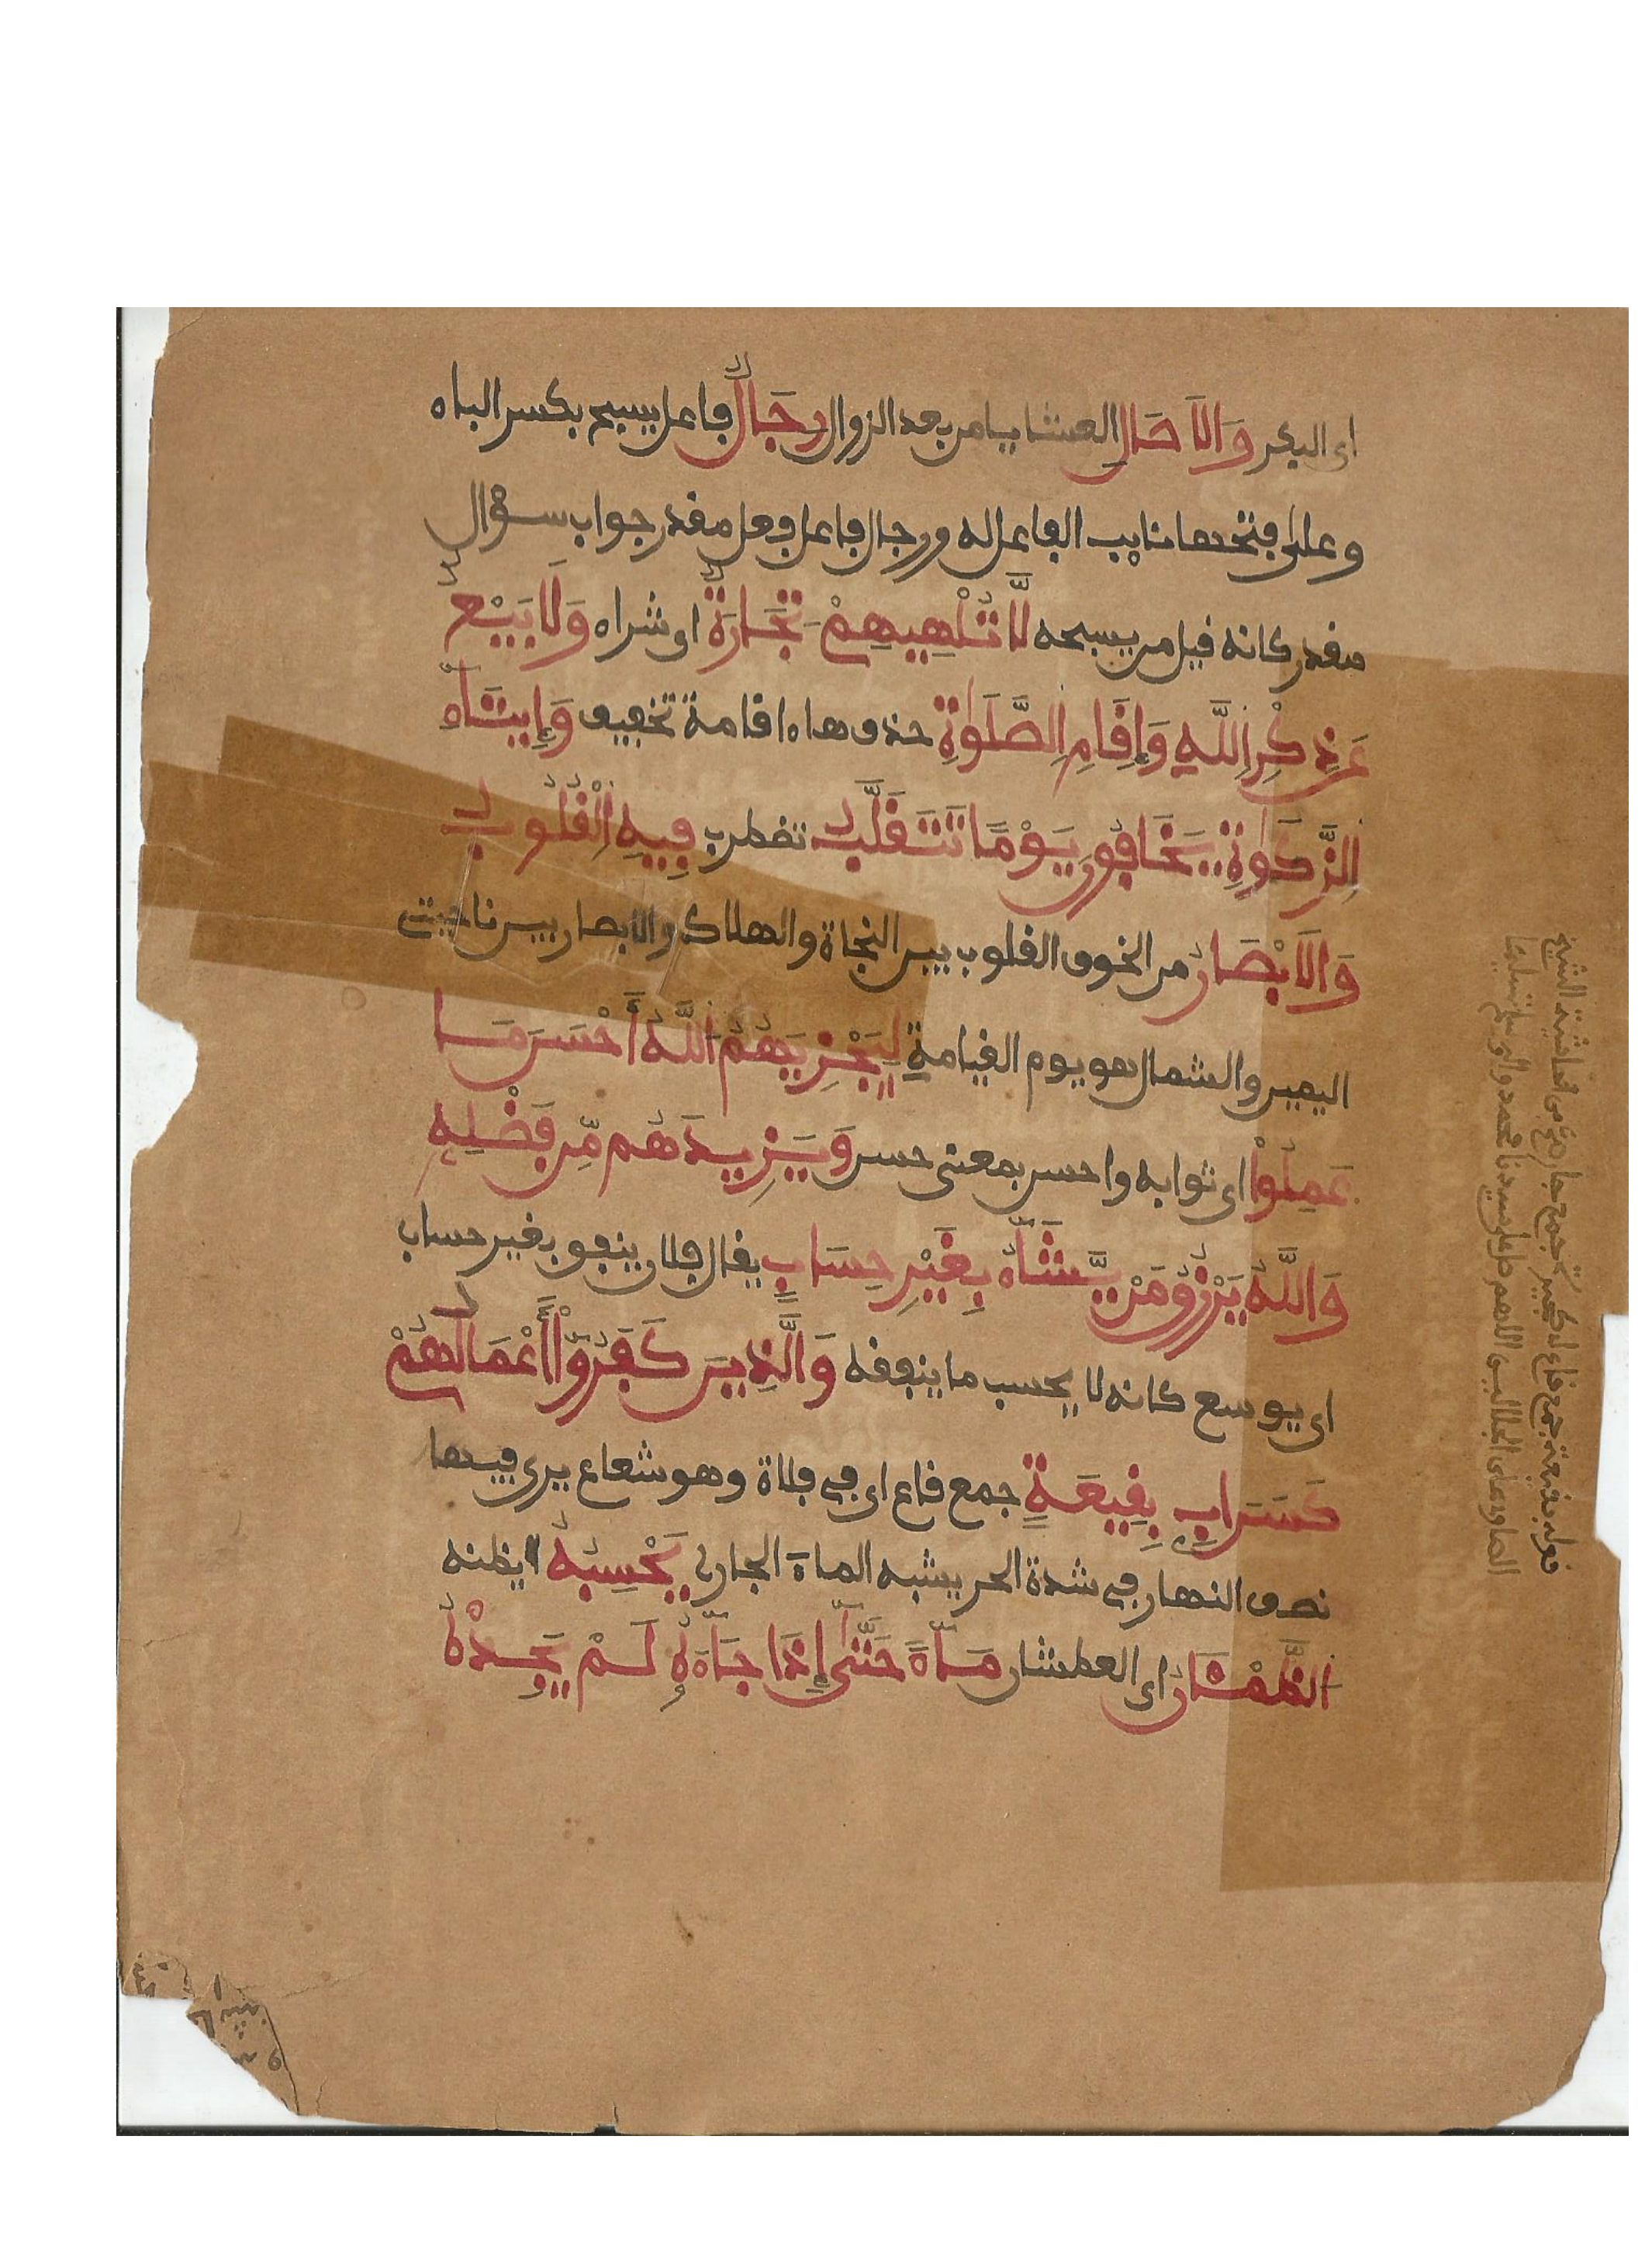 اى البكر وَالَاصَالِ العشايا من بعد الزوال رِجَالٌ فاعل يسبح بكسر الباء
وعلى فتحها نايب الفاعل له ورجال فاعل فعل مقدر جواب سؤال
مقدر كانه قيل من يسبحه لَّا تُلْهِيهِمْ تِجَارَةٌ اى شراء وَلَا بَيْعٌ
عَن ذِكْرِ اللَّهِ وَإِقَامِ الصَّلَوٰةِ حذف هاء اقامة تخفيف وَإِيتَآءِ
الزَّكَوٰةِ يَخَافُونَ يَوْمًا تَتَقَلَّبُ تضطرب فِيهِ الْقُلُوبُ
وَالَابْصَارُ من الخوف القلوب بين النجاة والهلاك والابصار بين ناحيتى
اليمين والشمال هو يوم القيامة لِيَجْزِيَهُمُ اللَّهُ أَحْسَنَ مَا
عَمِلُواْ اى ثوابه واحسن بمعنى حسن وَيَزِيدَهُم مِّن فَضْلِهِ
وَاللَّهُ يَرْزُقُ مَنْ يَّشَآءُ بِغَيْرِ حِسَابٍ يقال فلان ينفق بغير حساب
اى يوسع كانه لا يحسب ما ينفقه وَالَّذِينَ كَفَرُوٓاْ أَعْمَالُهُمْ
كَسَرَابٍ بِقِيعَةٍ جمع قاع اى فى فلاة وهو شعاع يرى فيها
نصف النهار فى شدة الحر يشبه الماء الجارى يَحْسِبُهُ يظنه
الظَّمْـَٔانُ اى العطشان مَآءً حَتَّىٰ إِذَا جَآءَهُ لَمْ يَجِدْهُ
قوله بقيعة جمع قاع
الصاوى على الجلالين اللهم صل على سيدنا محمد واله وسلم تسليما